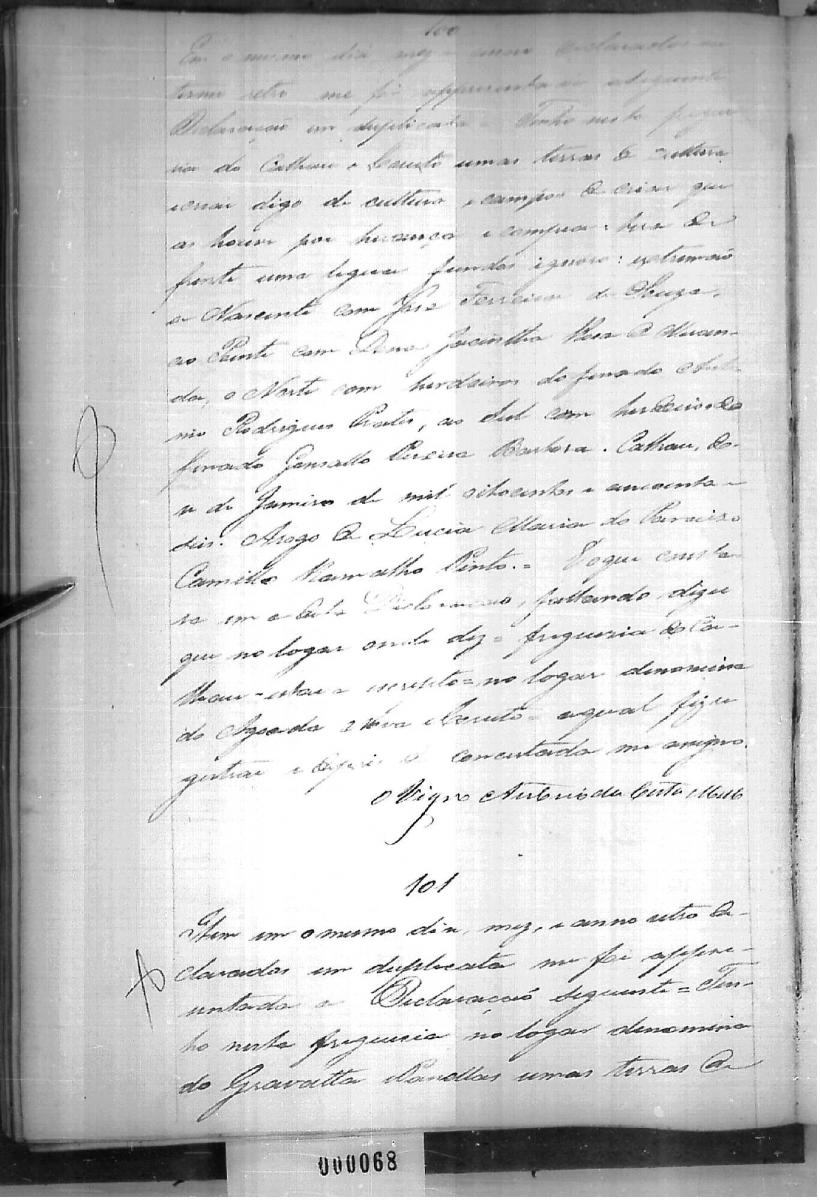 100
Em o mesmo dia mez e anno declarados no
termo retro me foi appresentada a seguinte
Declaração em duplicata = Tenho nesta fregue
sia do Calhau e umas terras de cultura
digo de cultura e campos de criar que
as houve por herança e compra: tera de
frente uma legua fundos ignoro: extremaõ
ao Nascente com José Ferreira de Souza,
ao Poente com Dona Jacintha Rosa de Miran-
da, o Norte com herdeiros do finado Anto-
nio Rodrigues Prates, ao Sul com herdeiros do
finado Gonsallo Pereira Barbosa. Calhau, de-
z de Janeiro de mil oitocentos e cincoenta e
seis. Arogo de Lucia Maria do Paraizo
Camillo Ramalho Pinto. = E o que consta-
va em a dita Declaração, faltando, digo
que no logar onde diz = freguesia do Ca-
lhau = estava escripto = no logar denomina
do Agoada Nova e = a qual fiz re
gistrar e depois de concertada me assigno.
O Vigro Antonio da Costa Mello
101
Item em o mesmo dia, mez, e anno retro de-
clarados em duplicata me foi appre-
sentada a Declaracaõ seguinte = Ten-
ho nesta freguesia no logar denomina
do Gravatta e Panellas umas terras de
000068